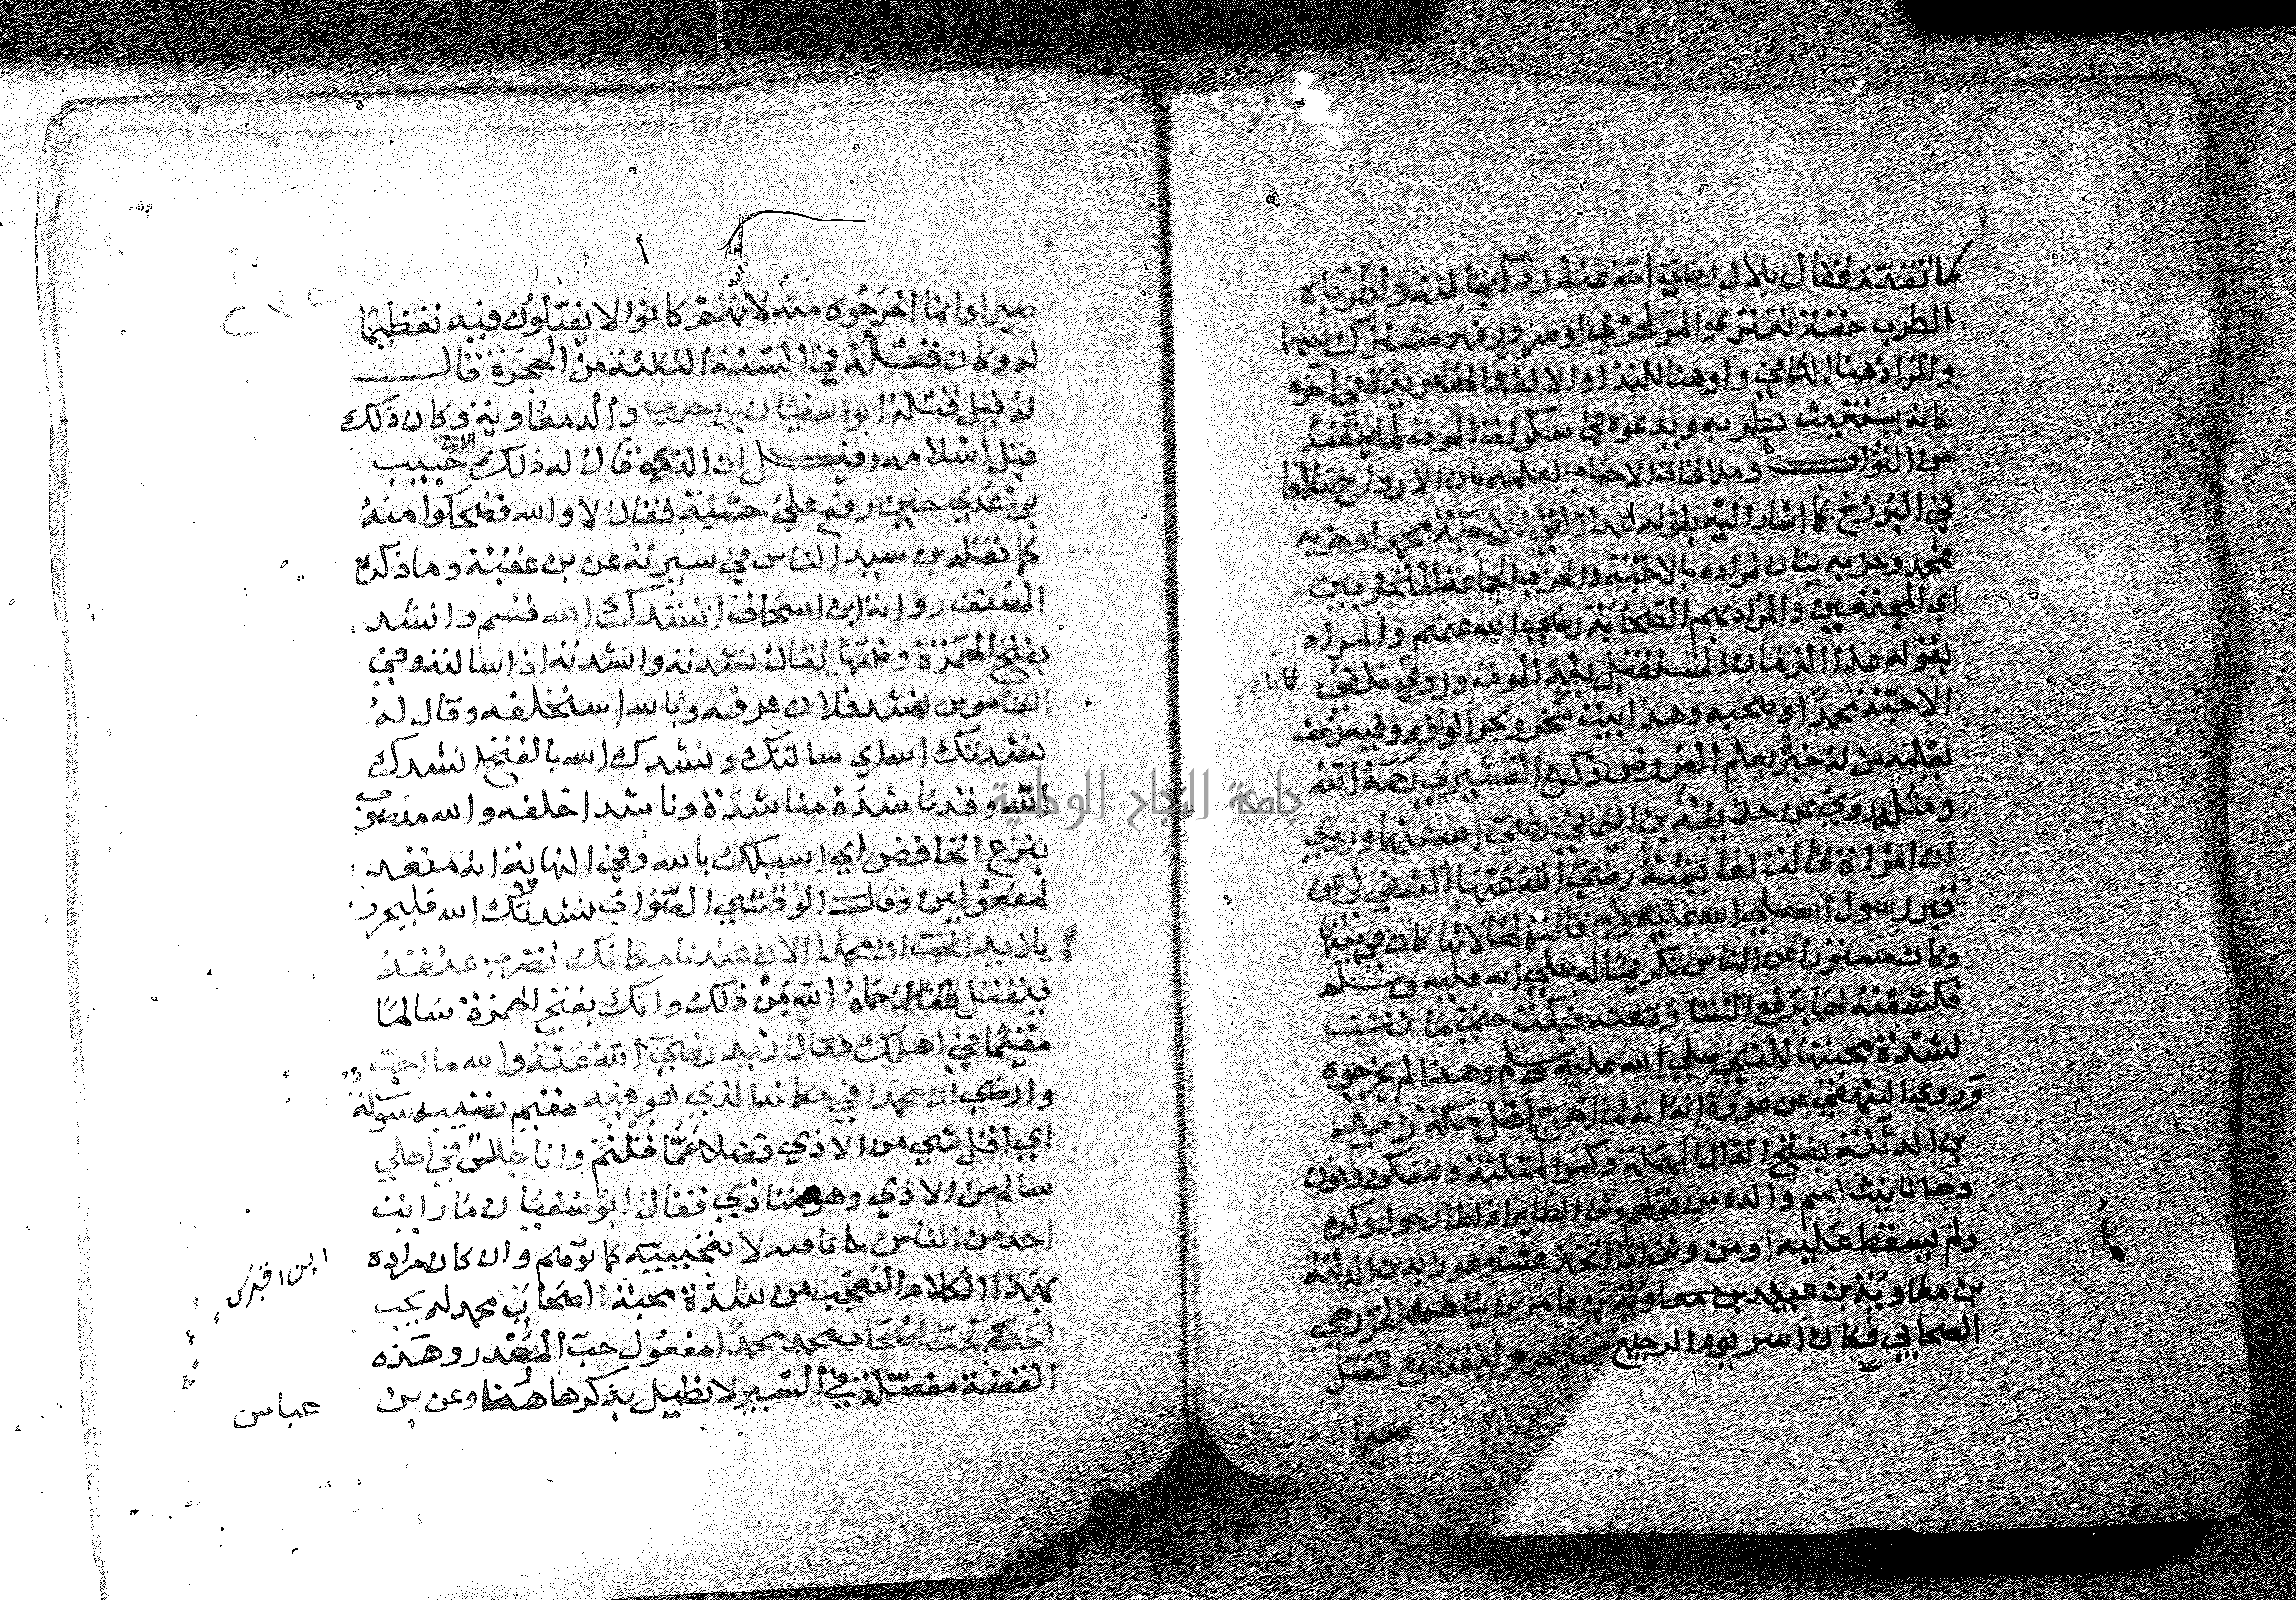 كما تقدم فقال بلال رضي الله عنه رد كما بنا لنه واطرباه
الطرب خفة تعتري المر لحزن او سرور فهو مشترك بينهما
والمراد هنا الثاني واو هنا للندا والالف والها مزيدة في اخره
كانه يستغيث بطربه ويدعوه في سكرات الموت لما يعتقده
من الثواب وملاقاة الاحباب لعلمه بان الارواح تتلاقا
في البرزخ كما اشار اليه بقوله غدا القى الاحبة محمدا وحزبه
محمد وحزبه بيان لمراده بالاحبة والحزب الجماعة المتحزبين
اي المجتمعين والمراد بهم الصحابة رضي الله عنهم والمراد
بقوله غدا الزمان المستقبل بعد الموت وروي نلقى
الاحبة محمدا وصحبه وهذا بيت من بحر الوافر وفيه زحف
يعلمه من له خبرة بعلم العروض ذكره القشيري رحمه الله
ومثله روي عن حذيفة بن اليماني رضي الله عنهما وروي
ان امراة قالت لعايشة رضي الله عنها اكشفي لي عن
قبر رسول الله صلي الله عليه وسلم قالت لها لانها كان في بيتها
وكان مستورا عن الناس تكريما له صلي الله عليه وسلم
فكشفته لها برفع الستارة عنه فبكت حتى ماتت
لشدة محبتها للنبي صلي الله عليه وسلم وهذا لم يخرجوه
وروي البيهقي عن عروة انه لما اخرج اهل مكة زيد
بن الدثنة بفتح الدال المهملة وكسر المثلثة وتسكن ونون
وها تانيث اسم والده من قولهم دثن الطاير اذا طار حول وكره
ولم يسقط عليه او من دثن اذا اتخذ عشا وهو زيد بن الدثنة
بن معاوية بن عبيد بن معاوية بن عامر بن بياضة الخزرجي
الصحابي فكان اسر يوم الرجيع من الحرم ليقتلوه فقتل
صبرا
صبرا وانما اخرجوه منه لانهم كانوا لا يقتلون فيه تعظيما
له وكان قتله في السنة الثالثة من الهجرة قال
له قبل قتله ابو اسفيان بن حرب والد معاوية وكان ذلك
قبل اسلامه وقيل ان الذي قال له ذلك خبيب
بن عدي حين رفع علي خشبة فقال لا والله فضحكوا منه
كما نقله بن سيد الناس في سيرته عن بن عقبة وما ذكره
المصنف رواية ابن اسحاق انشدك الله قسم وانشد
بفتح الهمزة وضمها يقال نشدته وانشدته اذا سالته وفي
القاموس نشد فلان عرفه وبالله استحلفه وقال له
نشدتك الله اي سالتك ونشدك الله بالفتح انشدك
الله وقد ناشده مناشدة وناشد احلفه والله منصوب
بنزع الخافض اي اسيلك بالله وفي النهاية انه متعد
لمفعولين وقال الوقشي الصواب نشدتك الله فليحرر
يا زيد اتحب ان محمدا الان عندنا مكانك تضرب عنقه
فيقتل حماه الله من ذلك وانك بفتح الهمزة سالما
مقيما في اهلك فقال زيد رضي الله عنه والله ما احب
وارضي ان محمدا في مكانه الذي هو فيه مقيم تصيبه شوكة
اي اقل شي من الاذي فضلا عما قلتم وانا جالس في اهلي
سالم من الاذي وهو متاذي فقال ابو سفيان ما رايت
احد من الناس ما نافيه لا تعجبيه كما توهم وان كان مراده
بهذا الكلام التعجب من شدة محبة اصحاب محمد له يحب
احدا كحب اصحاب محمد محمدا مفعول حب المصدر وهذه
القصة مفصلة في السير لا نطيل بذكرها هنا وعن بن
عباس